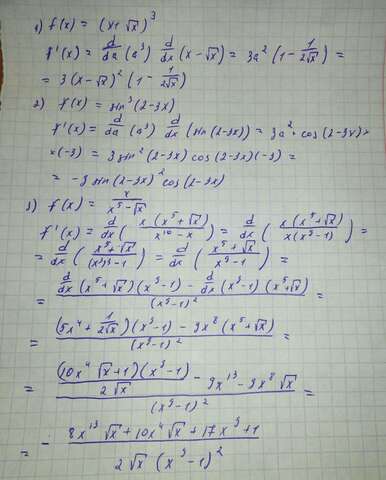 1) f(x) = (x+√x)³
f'(x) = d/da (a³) d/dx (x-√x) = 3a² (1 - 1/(2√x)) =
= 3(x-√x)² (1 - 1/(2√x))
2) f(x) = sin³(2-3x)
f'(x) = d/da (a³) d/dx (sin(2-3x)) = 3a² · cos(2-3x)×
×(-3) = 3sin²(2-3x) cos(2-3x)(-3) =
= -9 sin(2-3x)² cos(2-3x)
3) f(x) = x/(x⁵-√x)
f'(x) = d/dx (x(x⁵+√x)/(x¹⁰-x)) = d/dx (x(x⁵+√x)/(x(x⁹-1))) =
= d/dx ((x⁵+√x)/(x⁹)-1) = d/dx ((x⁵+√x)/(x⁹-1)) =
= (d/dx (x⁵+√x)(x⁹-1) - d/dx (x⁹-1)(x⁵+√x))/(x⁹-1)² =
= ((5x⁴+1/(2√x))(x⁹-1) - 9x⁸(x⁵+√x))/(x⁹-1)² =
= ((10x⁴√x+1)(x⁹-1)/(2√x) - 9x¹³-9x⁸√x)/(x⁹-1)² =
= - (8x¹³√x+10x⁴√x+17x⁹+1)/(2√x (x⁹-1)²)